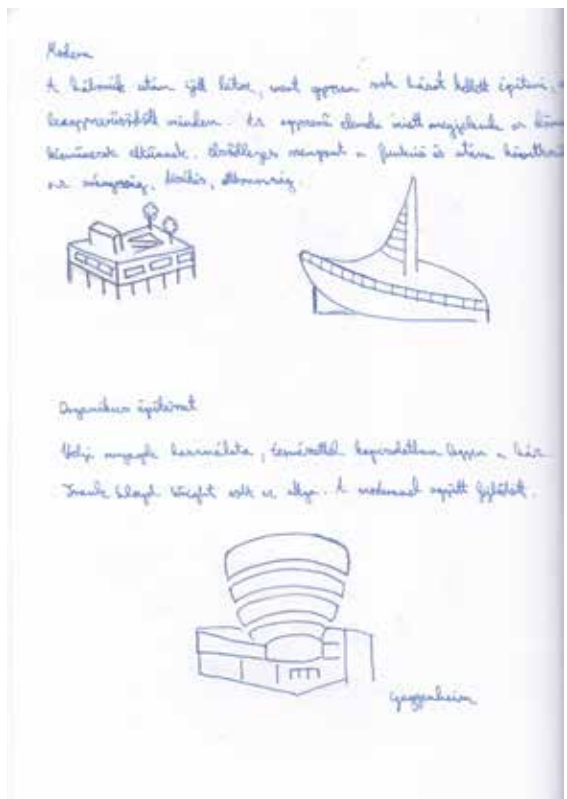 Modern
A háborúk után jött létre, mert gyorsan sok házat kellett építeni,
leegyszerűsödött minden. Az egyszerű elemek miatt megjelenik a
kézművesek eltűnnek. Elsődleges szempont a funkció és utána következik
az díszítés,
Organikus építészet
Helyi anyagok használata, természettel kapcsolatban legyen a ház.
Frank Lloyd Wright volt az atyja. A modernnel együtt fejlődött.
Guggenheim